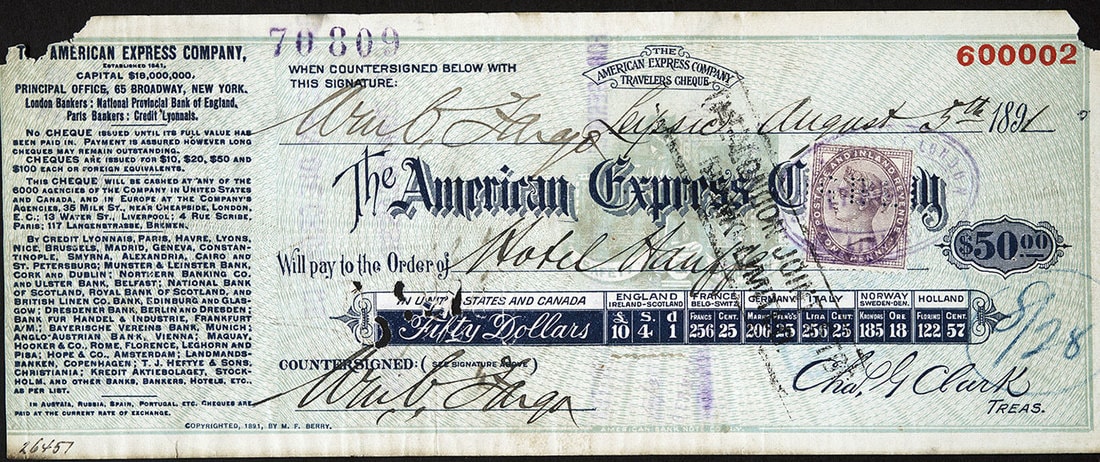 THE AMERICAN EXPRESS COMPANY,
ESTABLISHED 1841,
CAPITAL $18,000,000.
PRINCIPAL OFFICE, 65 BROADWAY, NEW YORK.
London Bankers: National Provincial Bank of England.
Paris Bankers: Credit Lyonnais.
NO CHEQUE ISSUED UNTIL ITS FULL VALUE HAS
BEEN PAID IN. PAYMENT IS ASSURED HOWEVER LONG
CHEQUES MAY REMAIN OUTSTANDING.
CHEQUES ARE ISSUED FOR $10, $20, $50 AND
$100 EACH OR FOREIGN EQUIVALENTS.
THIS CHEQUE WILL BE CASHED AT ANY OF THE
6000 AGENCIES OF THE COMPANY IN UNITED STATES
AND CANADA, AND IN EUROPE AT THE COMPANY'S
AGENCIES, 35 MILK ST., NEAR CHEAPSIDE, LONDON,
E.C.; 13 WATER ST., LIVERPOOL; 4 RUE SCRIBE,
PARIS; 117 LANGENSTRASSE, BREMEN.
BY CREDIT LYONNAIS, PARIS, HAVRE, LYONS,
NICE, BRUSSELS, MADRID, GENEVA, CONSTAN-
TINOPLE, SMYRNA, ALEXANDRIA, CAIRO AND
ST. PETERSBURG; MUNSTER & LEINSTER BANK,
CORK AND DUBLIN; NORTHERN BANKING CO.
AND ULSTER BANK, BELFAST; NATIONAL BANK
OF SCOTLAND, ROYAL BANK OF SCOTLAND, AND
BRITISH LINEN CO. BANK, EDINBURG AND GLAS-
GOW; DRESDENER BANK, BERLIN AND DRESDEN;
BANK FUR HANDEL & INDUSTRIE, FRANKFURT
A/M.; BAYERISCHE VEREINS BANK, MUNICH;
ANGLO-AUSTRIAN BANK, VIENNA; MAQUAY,
HOOKER & CO., ROME, FLORENCE, LEGHORN AND
PISA; HOPE & CO., AMSTERDAM; LANDMANDS-
BANKEN, COPENHAGEN; T. J. HEFTYE & SONS,
CHRISTIANIA; KREDIT AKTIEBOLAGET, STOCK-
HOLM, AND OTHER BANKS, BANKERS, HOTELS, ETC.,
AS PER LIST.
IN AUSTRIA, RUSSIA, SPAIN, PORTUGAL, ETC. CHEQUES ARE
PAID AT THE CURRENT RATE OF EXCHANGE.
26457
70809
WHEN COUNTERSIGNED BELOW WITH
THIS SIGNATURE:
THE
AMERICAN EXPRESS COMPANY
TRAVELERS CHEQUE
600002
Wm C. Fargo Leipsic August 5th 1891
The American Express Company
POSTAGE AND INLAND REVENUE
ONE PENNY
$50.00
Will pay to the Order of Hotel Hauffe
IN UNITED STATES AND CANADA
Fifty Dollars
ENGLAND
IRELAND-SCOTLAND
£ S. d
10 4 1
FRANCE
BELG-SWITZ.
FRANCS CENT.
256 25
GERMANY
MARKS
206 25
ITALY
CENT.
256 25
NORWAY
SWEDEN-DEN.
KRONORE ORE
185 18
HOLLAND
FLORINO CENT.
122 57
5/28
COUNTERSIGNED: (SEE SIGNATURE ABOVE)
Wm C. Fargo
Chas. G Clark
TREAS.
COPYRIGHTED, 1891, BY M. F. BERRY.
AMERICAN BANK NOTE CO. N.Y.